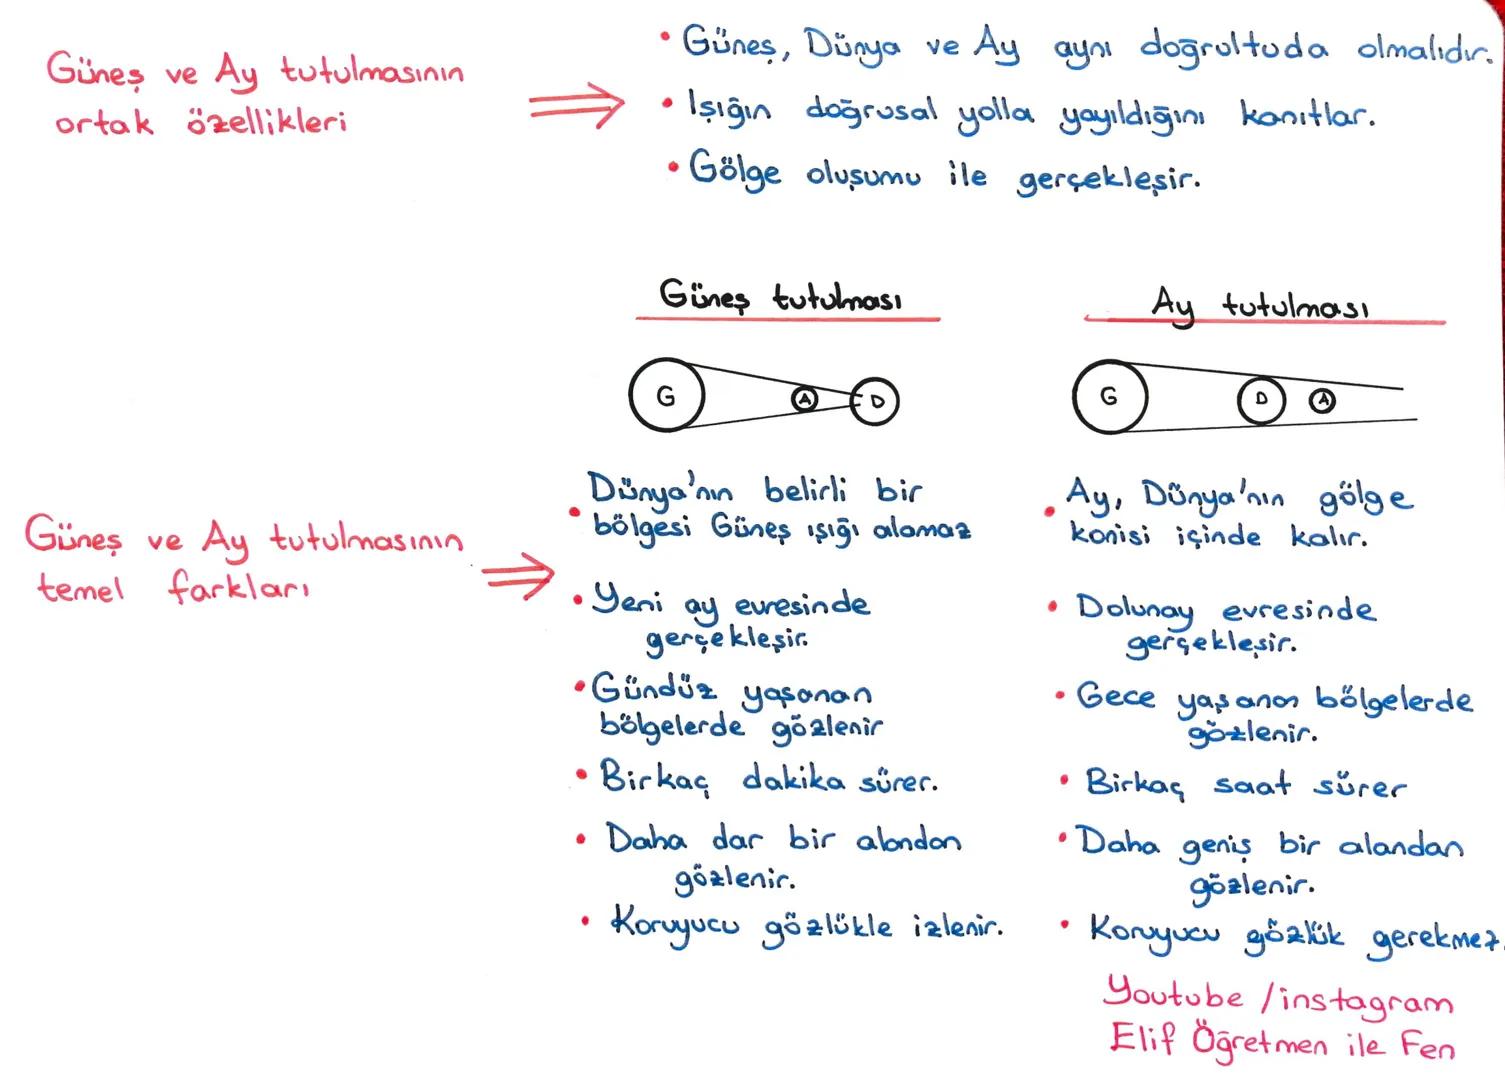 Güneş ve Ay tutulmasının
ortak özellikleri
• Güneş, Dünya ve Ay aynı doğrultuda olmalıdır.
• Işığın doğrusal yolla yayıldığını kanıtlar.
• Gölge oluşumu ile gerçekleşir.
Güneş ve Ay tutulmasının
temel farkları
Güneş tutulması
G A D
• Dünya'nın belirli bir
bölgesi Güneş ışığı alamaz
• Yeni ay evresinde
gerçekleşir.
• Gündüz yaşanan
bölgelerde gözlenir
• Birkaç dakika sürer.
• Daha dar bir alandan
gözlenir.
• Koruyucu gözlükle izlenir.
Ay tutulması
G D A
• Ay, Dünya'nın gölge
konisi içinde kalır.
• Dolunay evresinde
gerçekleşir.
• Gece yaşanan bölgelerde
gözlenir.
• Birkaç saat sürer
• Daha geniş bir alandan
gözlenir.
• Koruyucu gözlük gerekmez.
Youtube / instagram
Elif Öğretmen ile Fen